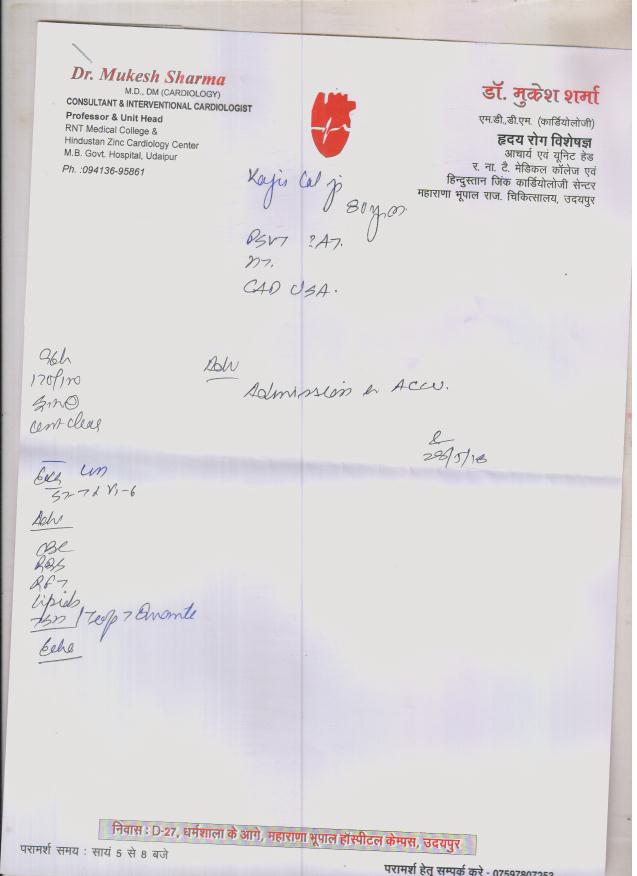 Dr. Mukesh Sharma
M.D., DM (CARDIOLOGY)
CONSULTANT & INTERVENTIONAL CARDIOLOGIST
Professor & Unit Head
RNT Medical College &
Hindustan Zinc Cardiology Center
M.B. Govt. Hospital, Udaipur
Ph. :094136-95861
डॉ. मुकेश शर्मा
एम.डी.,डी.एम. (कार्डियोलॉजी)
हृदय रोग विशेषज्ञ
आचार्य एवं यूनिट हेड
र. ना. टै. मेडिकल कॉलेज एवं
हिन्दुस्तान जिंक कार्डियोलॉजी सेन्टर
महाराणा भूपाल राज. चिकित्सालय, उदयपुर
80
PSVT ?AT.
CAD USA.
Adv
Admission in ACCU.
28/5/18
Cent clear
V1-6
Adv
CBC
RBS
RFT
Lipids
Echo
निवास : D-27, धर्मशाला के आगे, महाराणा भूपाल हॉस्पीटल केम्पस, उदयपुर
परामर्श समय : सायं 5 से 8 बजे
परामर्श हेतु सम्पर्क करे - 07597807253